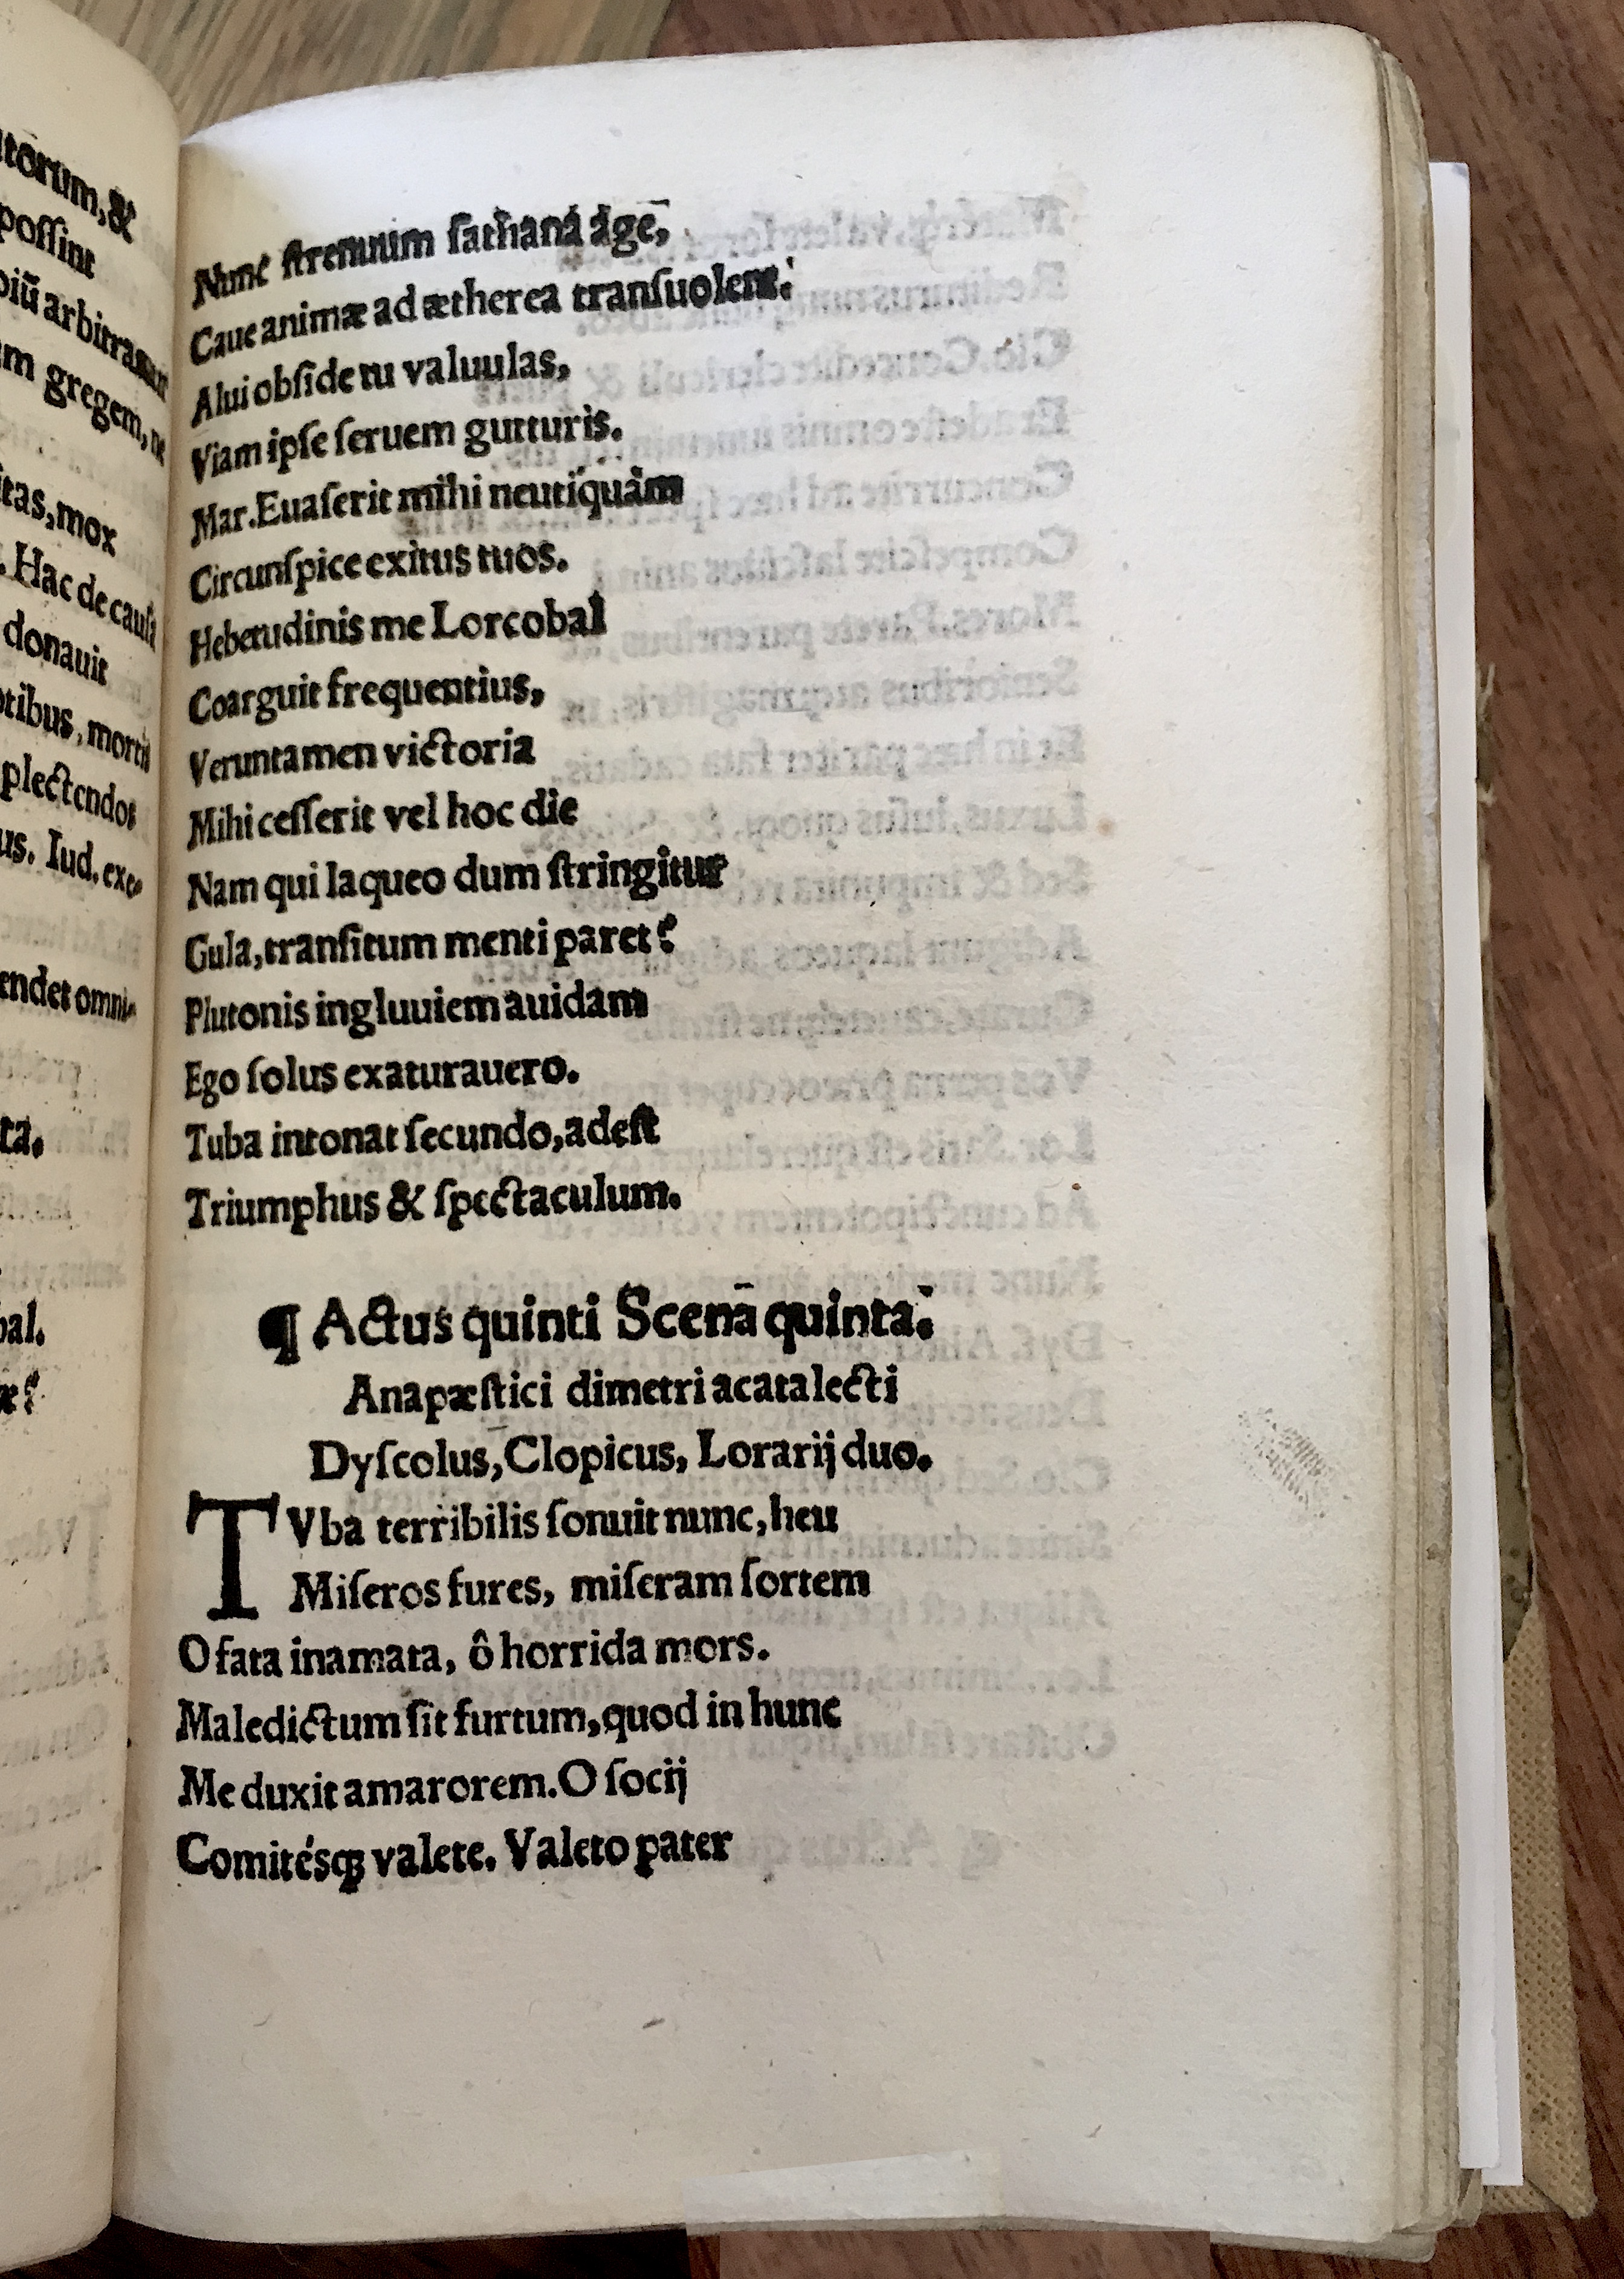 utorum,&
possint
piũ arbitramur
m gregem, ne
itas,mox
. Hac de causa
donauit
otibus, mortis
plectendos
us. Iud. exe-
endet omni-
ta.
bal.
æ?
Nunc strenuum sathanā age,
Caue animæ ad ætherea transuolent.
Alui obside tu valuulas,
Viam ipse seruem gutturis.
Mar.Euaserit mihi neutiquàm
Circunspice exitus tuos.
Hebetudinis me Lorcobal
Coarguit frequentius,
Veruntamen victoria
Mihi cesserit vel hoc die
Nam qui laqueo dum stringitur
Gula,transitum menti paret?
Plutonis ingluuiem auidam
Ego solus exaturauero.
Tuba intonat secundo,adest
Triumphus & spectaculum.
¶ Actus quinti Scena quinta.
Anapæstici dimetri acatalecti
Dyscolus,Clopicus, Lorarij duo.
TVba terribilis sonuit nunc,heu
Miseros fures, miseram sortem
O fata inamata, ô horrida mors.
Maledictum sit furtum,quod in hunc
Me duxit amarorem.O socij
Comitésqꝫ valete. Valeto pater